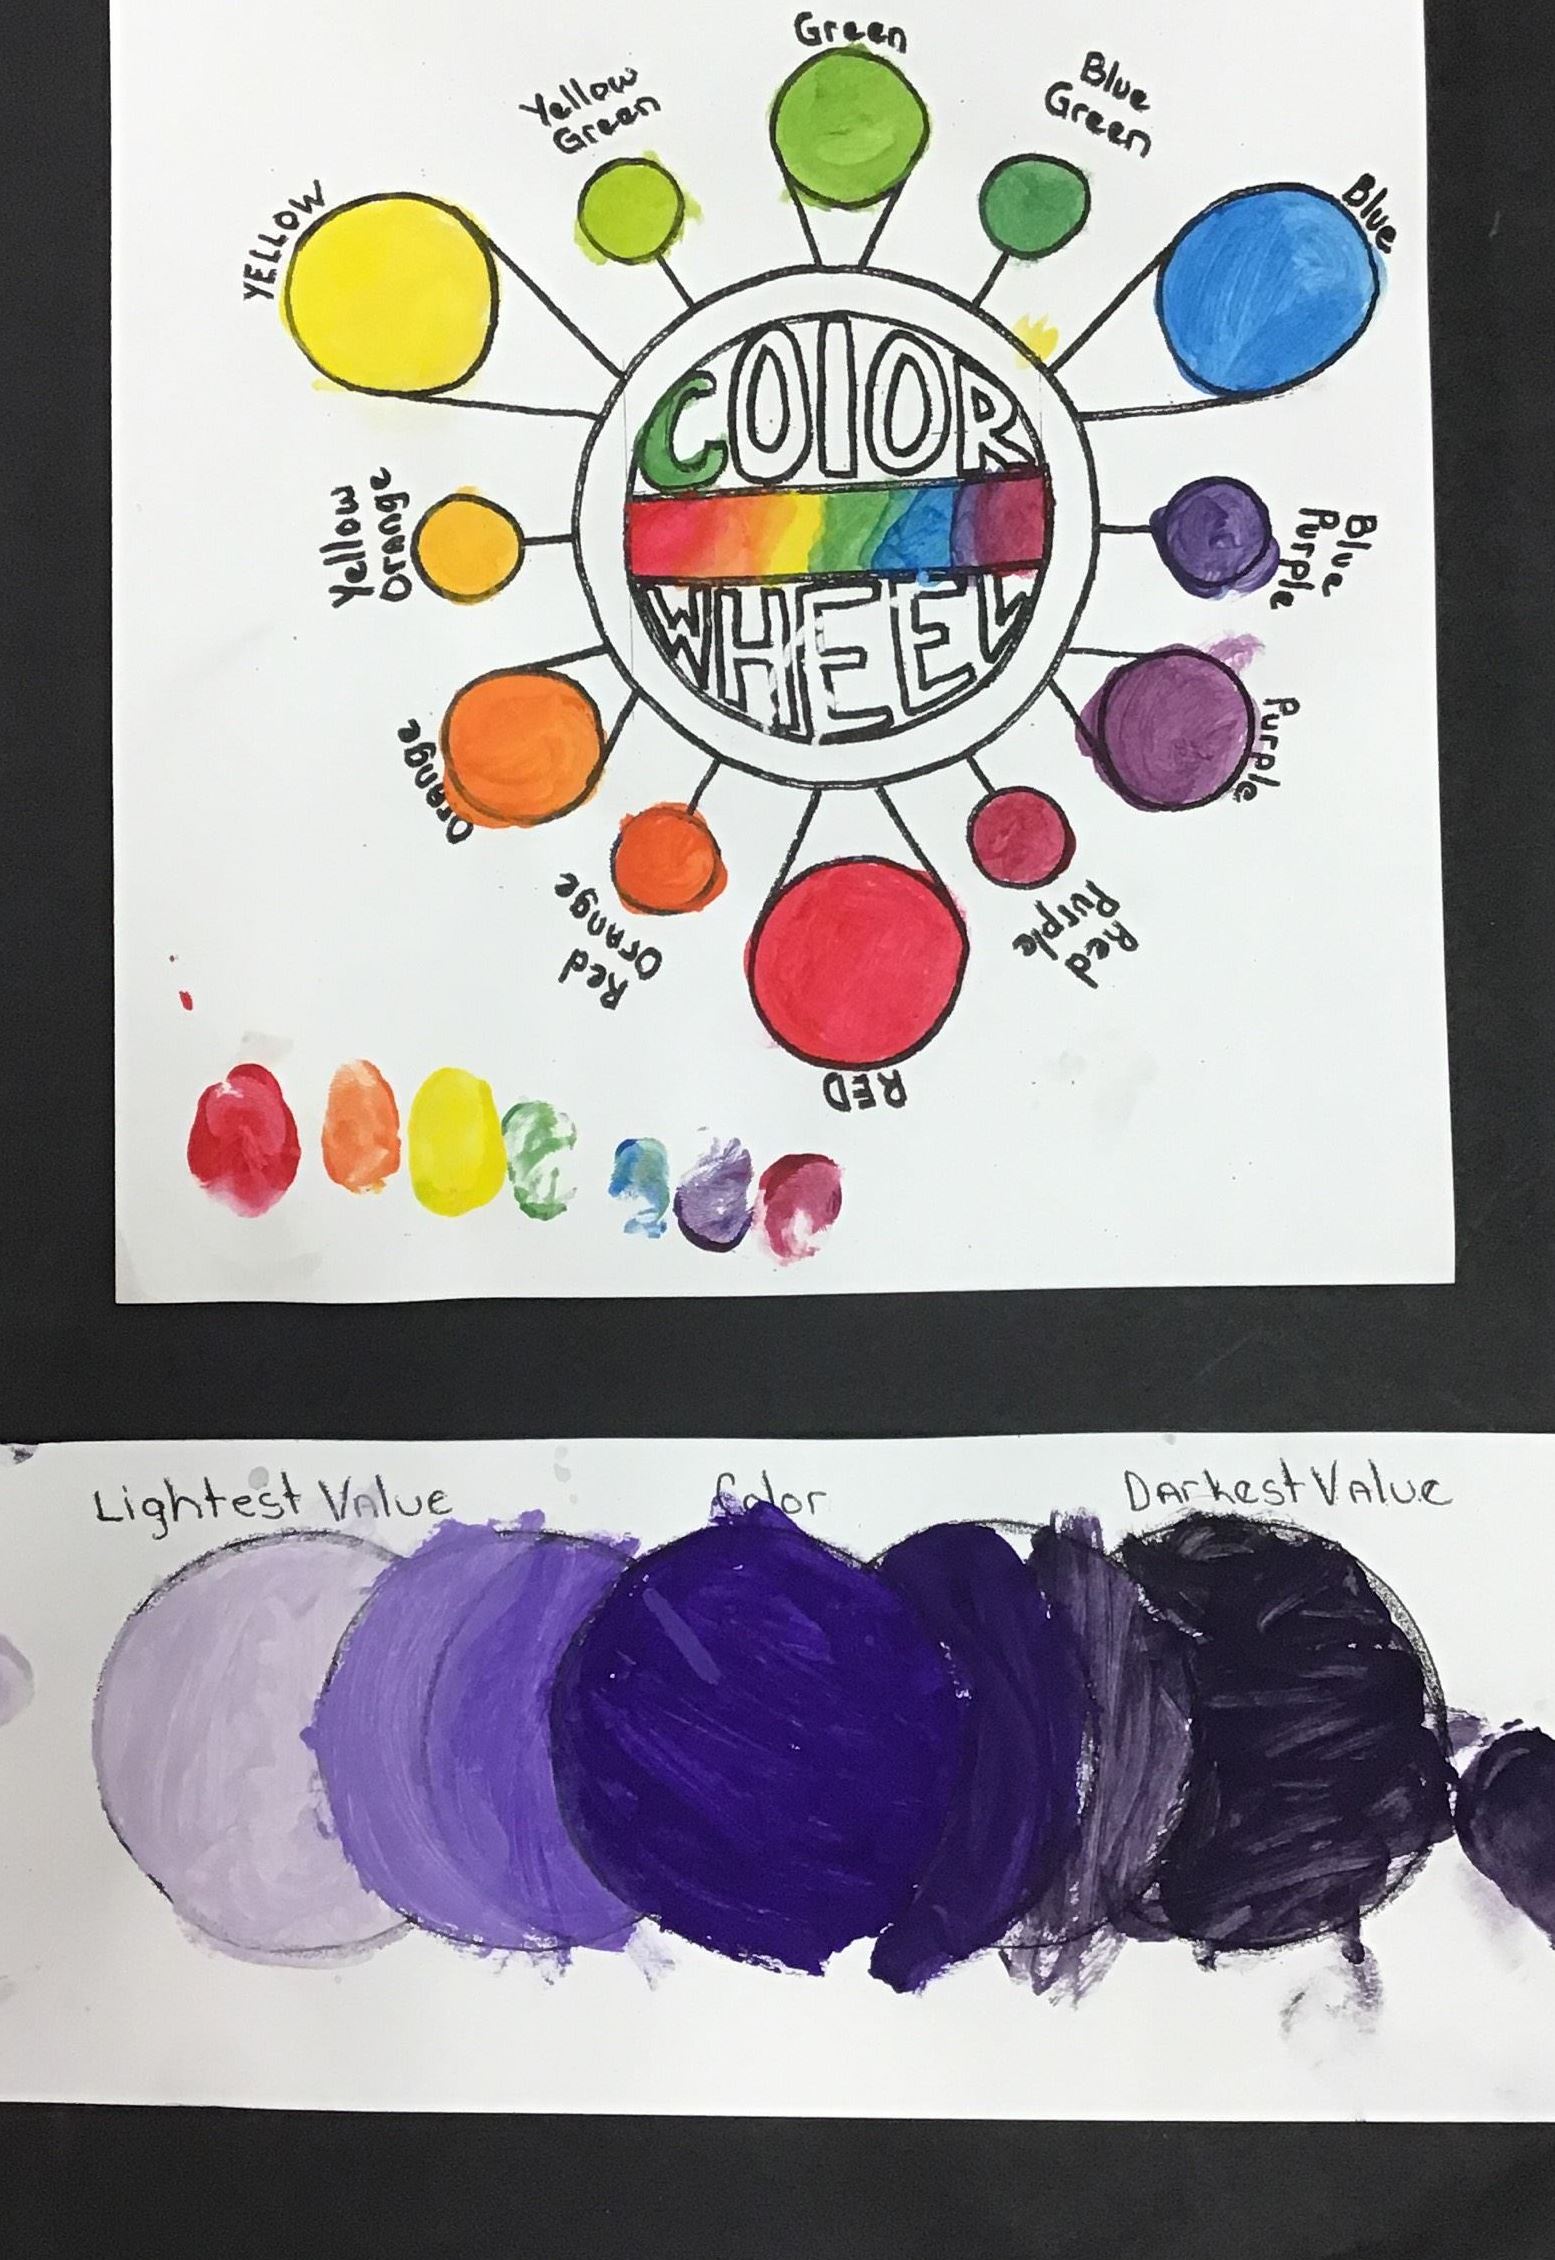 Green
Yellow
Green
Blue
Green
YELLOW
Blue
COlOR
WHEEL
Yellow
Orange
Blue
Purple
Orange
Purple
Red
Orange
Red
Purple
RED
Lightest Value
Color
Darkest Value